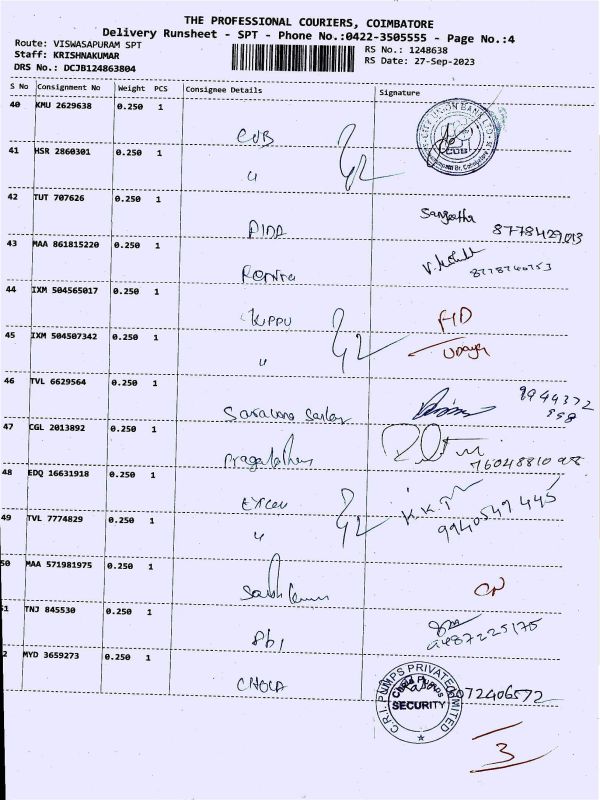 THE PROFESSIONAL COURIERS, COIMBATORE
Delivery Runsheet - SPT - Phone No.:0422-3505555 - Page No.:4
Route: VISWASAPURAM SPT
Staff: KRISHNAKUMAR
DRS No.: DCJB124863804
RS No.: 1248638
RS Date: 27-Sep-2023
S No Consignment No Weight PCS Consignee Details Signature
40 KMU 2629638 0.250 1 CUB
CITY UNION BANK LTD
CUB
41 HSR 2860301 0.250 1 "
42 TUT 707626 0.250 1 Sangeetha 8778429013
43 MAA 861815220 0.250 1 8778740753
44 IXM 504565017 0.250 1 KIPPU
45 IXM 504507342 0.250 1 " Udaya
46 TVL 6629564 0.250 1 9944372
47 CGL 2013892 0.250 1
48 EDQ 16631918 0.250 1 EXCEL 9940549445
49 TVL 7774829 0.250 1 "
50 MAA 571981975 0.250 1
51 TNJ 845530 0.250 1 9487225175
2 MYD 3659273 0.250 1 CHOLA 9072406572
C.R.I. PUMPS PRIVATE LIMITED
SECURITY
3